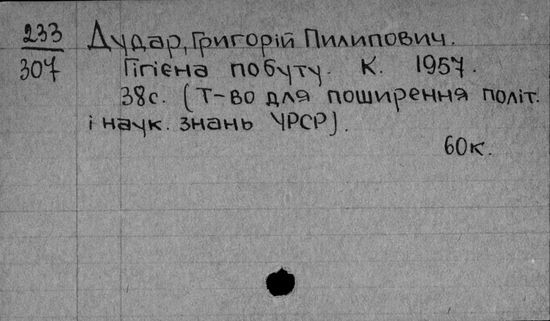 233 Дудар, Григорій Пилипович.
307 Гігієна побуту. К. 1957.
38с. (Т-во для поширення політ.
і наук. знань УРСР).
60к.